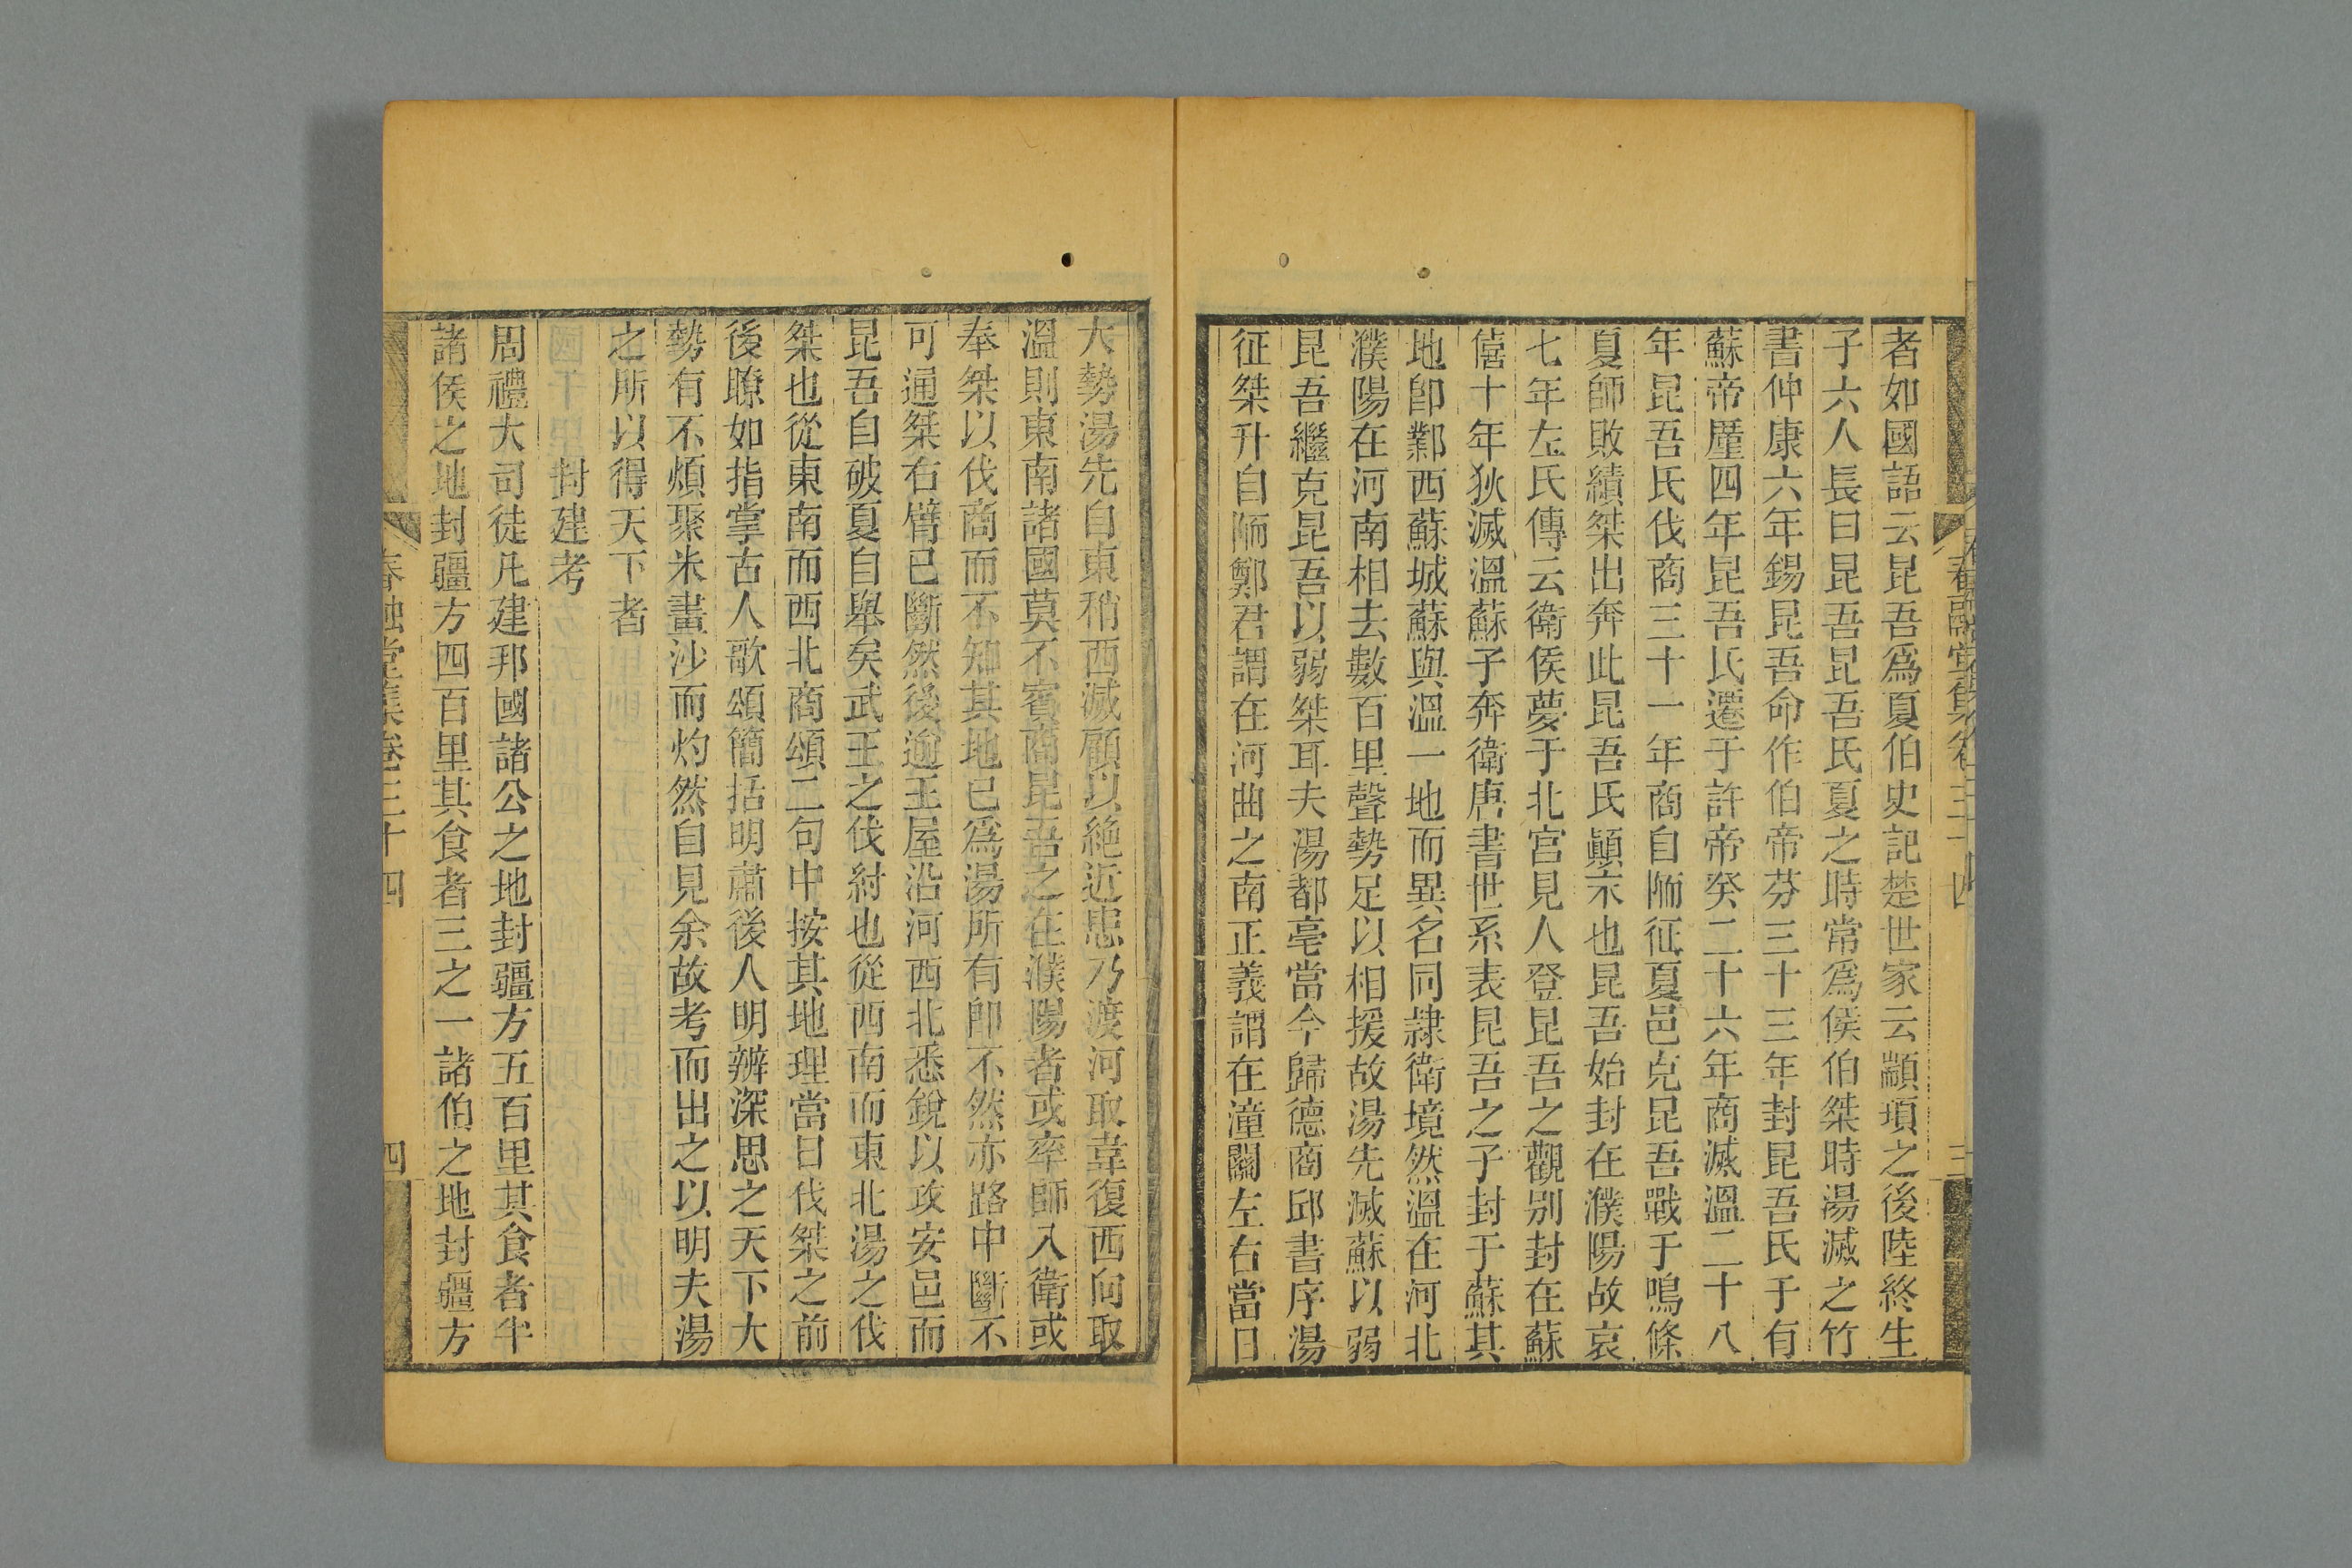 者如國語云昆吾爲夏伯史記楚世家云顓頊之後陸終生
子六人長曰昆吾昆吾氏夏之時常爲侯伯桀時湯滅之竹
書仲康六年錫昆吾命作伯帝芬三十三年封昆吾氏于有
蘇帝廑四年昆吾氏遷于許帝癸二十六年商滅溫二十八
年昆吾氏伐商三十一年商自陑征夏邑克昆吾戰于鳴條
夏師敗績桀出奔此昆吾氏顚末也昆吾始封在濮陽故哀
七年左氏傳云衛侯夢于北宮見人登昆吾之觀别封在蘇
僖十年狄滅溫蘇子奔衛唐書世系表昆吾之子封于蘇其
地卽鄴西蘇城蘇與溫一地而異名同隷衛境然溫在河北
濮陽在河南相去數百里聲勢足以相援故湯先滅蘇以弱
昆吾繼克昆吾以弱桀耳夫湯都亳當今歸德商邱書序湯
征桀升自陑鄭君謂在河曲之南正義謂在潼關左右當日
大勢湯先自東稍西滅顧以絶近患乃渡河取韋復西向取
溫則東南諸國莫不賓商昆吾之在濮陽者或率師入衛或
奉桀以伐商而不知其地已爲湯所有卽不然亦路中斷不
可通桀右臂已斷然後逾王屋沿河西北悉銳以攻安邑而
昆吾自破夏自舉矣武王之伐紂也從西南而東北湯之伐
桀也從東南而西北商頌二句中按其地理當日伐桀之前
後瞭如指掌古人歌頌簡括明肅後人明辨深思之天下大
勢有不煩聚米畫沙而灼然自見余故考而出之以明夫湯
之所以得天下者
封建考
周禮大司徒凡建邦國諸公之地封疆方五百里其食者半
諸侯之地封疆方四百里其食者三之一諸伯之地封疆方
春融堂集卷三十四
四